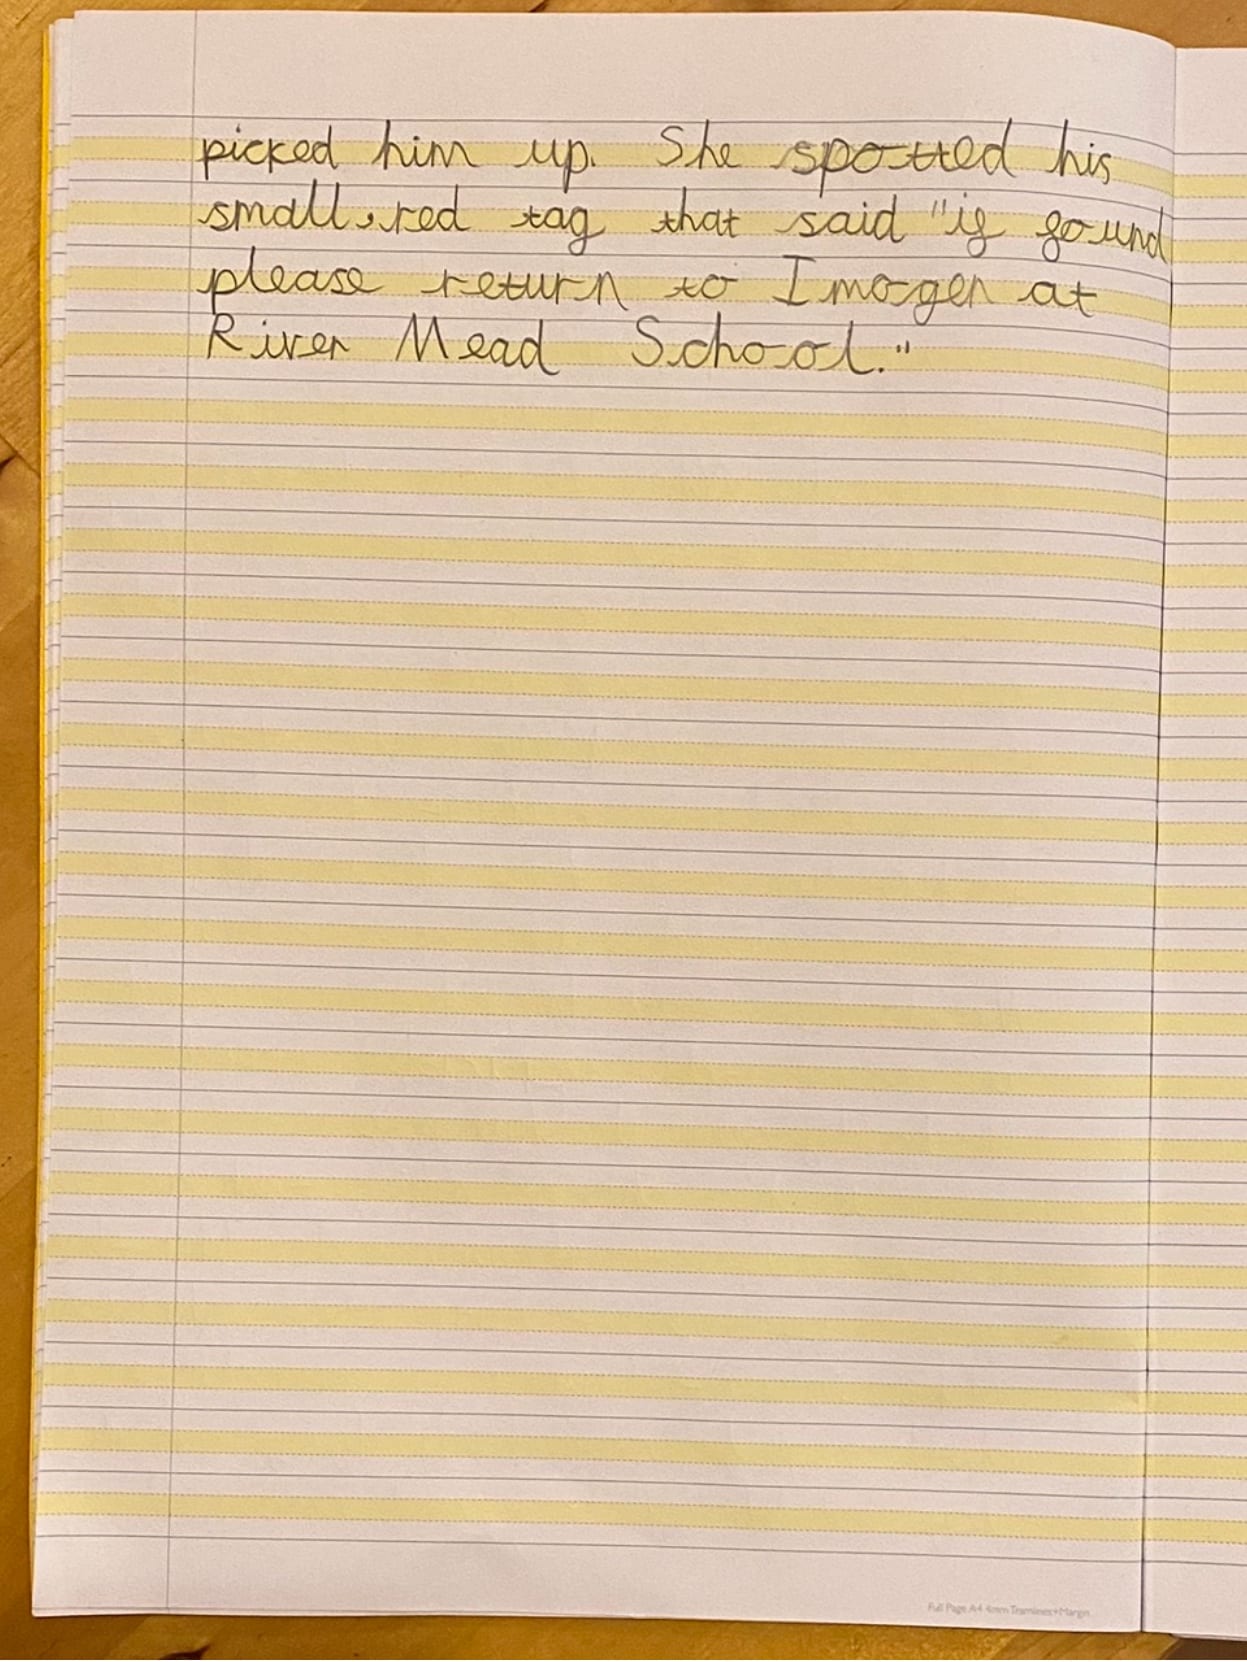 picked him up. She spotted his
small, red tag that said "if found
please return to Imogen at
River Mead School."
Full Page A4 4mm Tramlines+Margin